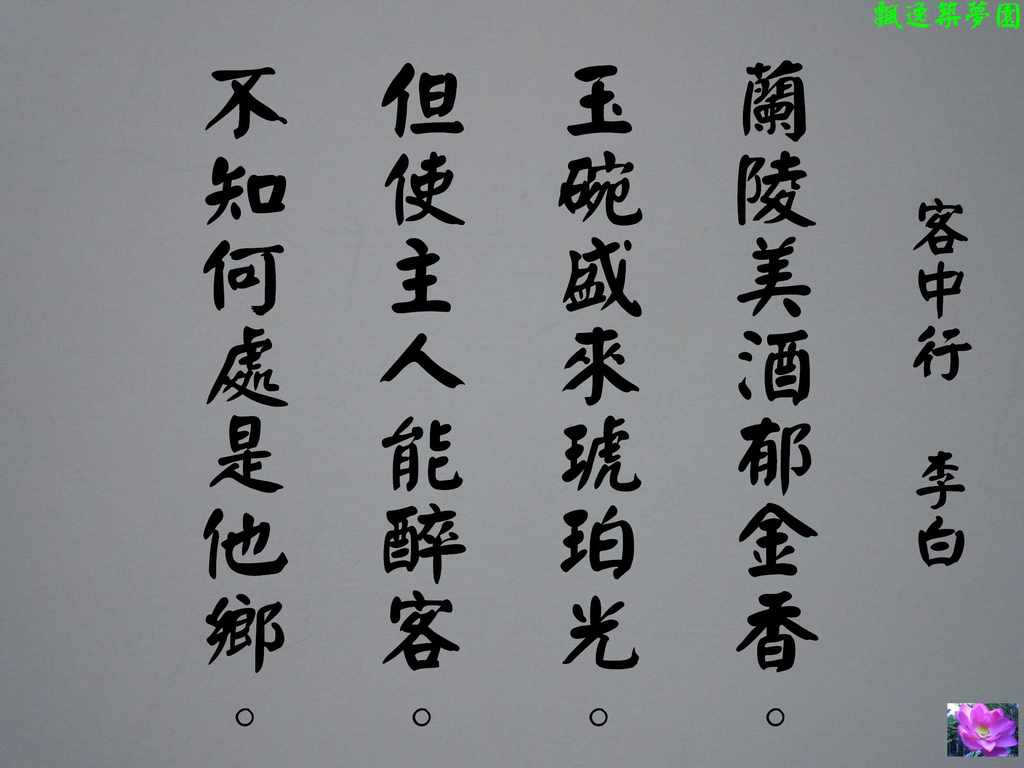 飄逸築夢園
客中行 李白
蘭陵美酒郁金香。
玉碗盛來琥珀光。
但使主人能醉客。
不知何處是他鄉。